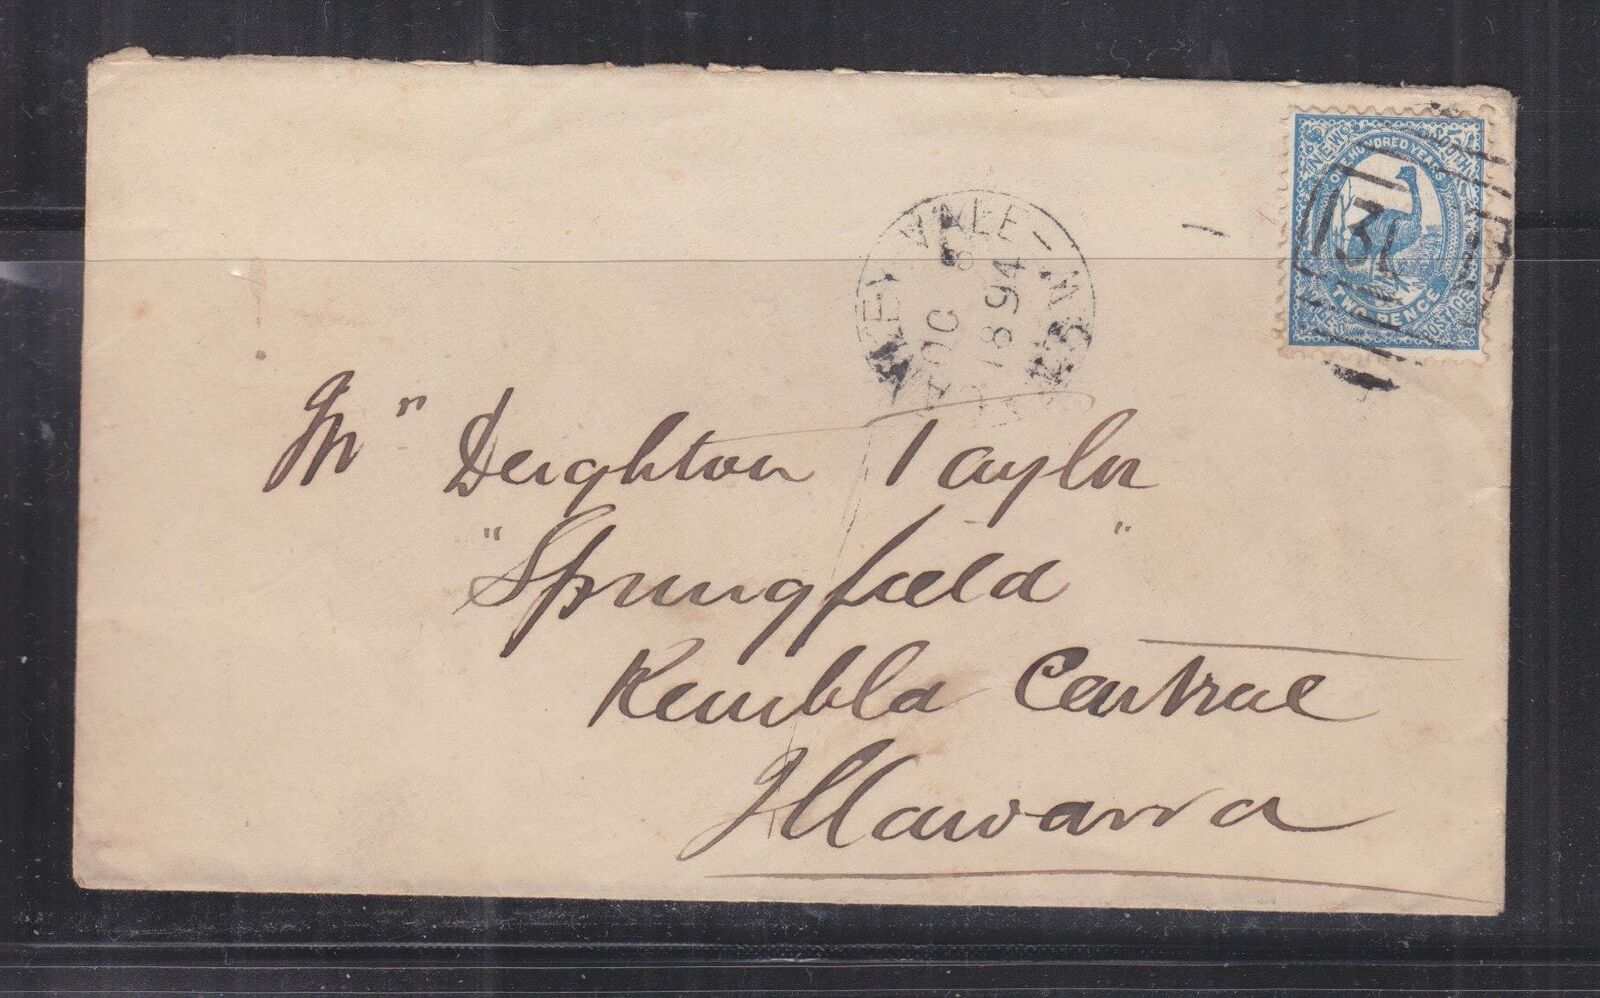 NEW SOUTH WALES
ONE HUNDRED YEARS
TWO PENCE
POSTAGE
31
VALE
OC 8
1894
N.S.W
Mr Deighton Taylor
"Springfield"
Kembla Central
Illawarra